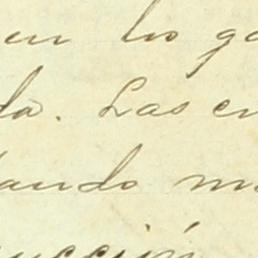 en lo ga
da. Las en
tando m
ucción